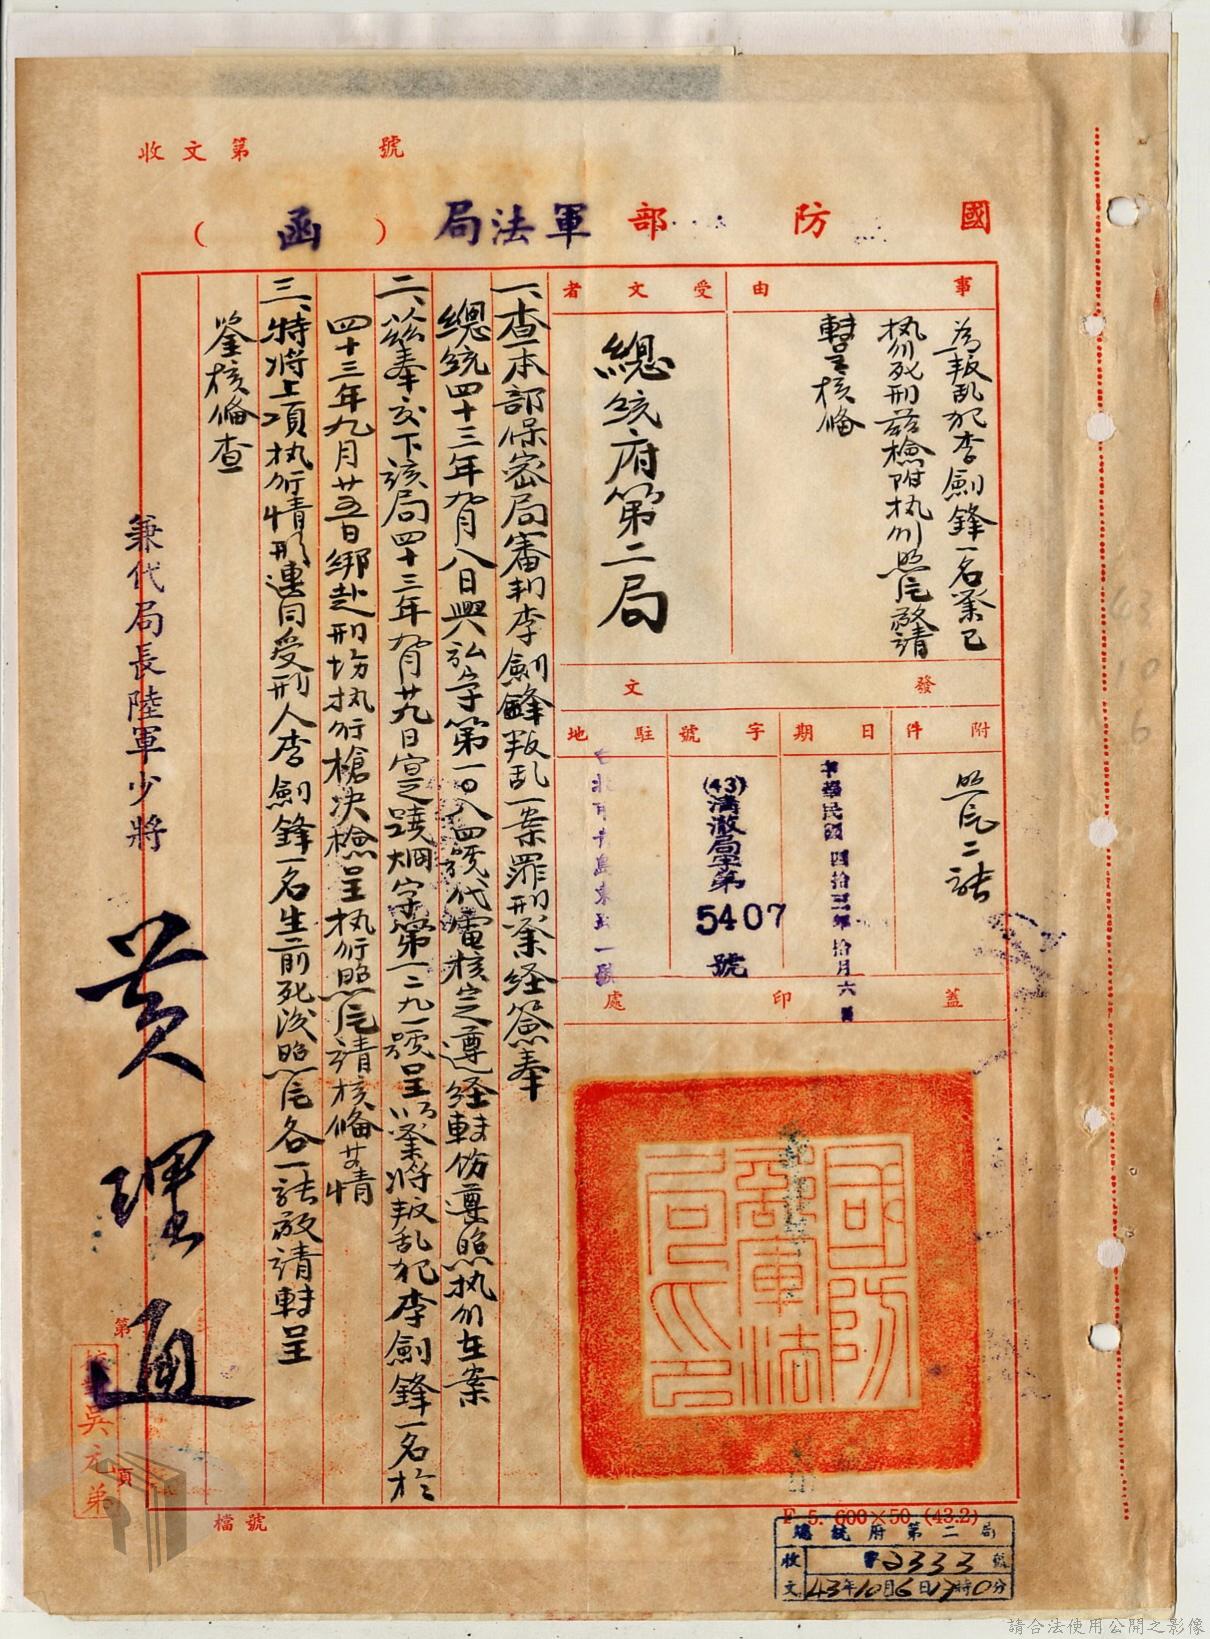 收文第　　號
國防部軍法局（函）
事由
為叛乱犯李劍鋒一名業已
执行死刑茲檢附执行照片敬請
轉呈核備
受文者
總統府第二局
發文
附件
照片二張
日期
中華民國四拾三年拾月六日
字號
(43)清澈局字第
5407
號
駐地
台北市青島東路一號
蓋印處
國防部軍法局印
一、查本部保密局審判李劍鋒叛乱一案罪刑業经簽奉
總統四十三年九月八日興弘字第一〇八四號代電核定遵经轉飭遵照执行在案
二、茲奉交下该局四十三年九月廿九日宣邊烟字第一二九一號呈以業將叛乱犯李劍鋒一名於
四十三年九月廿五日绑赴刑场执行槍决檢呈执行照片請核備等情
三、特將上項执行情形連同受刑人李劍鋒一名生前死後照片各一張敬請轉呈
鉴核備查
兼代局長陸軍少將
黃理迪
第　頁
吳元弟
檔號
F 5. 600×50 (43.2)
總統府第二局
收　字2333號
文 43年10月6日17時0分
請合法使用公開之影像